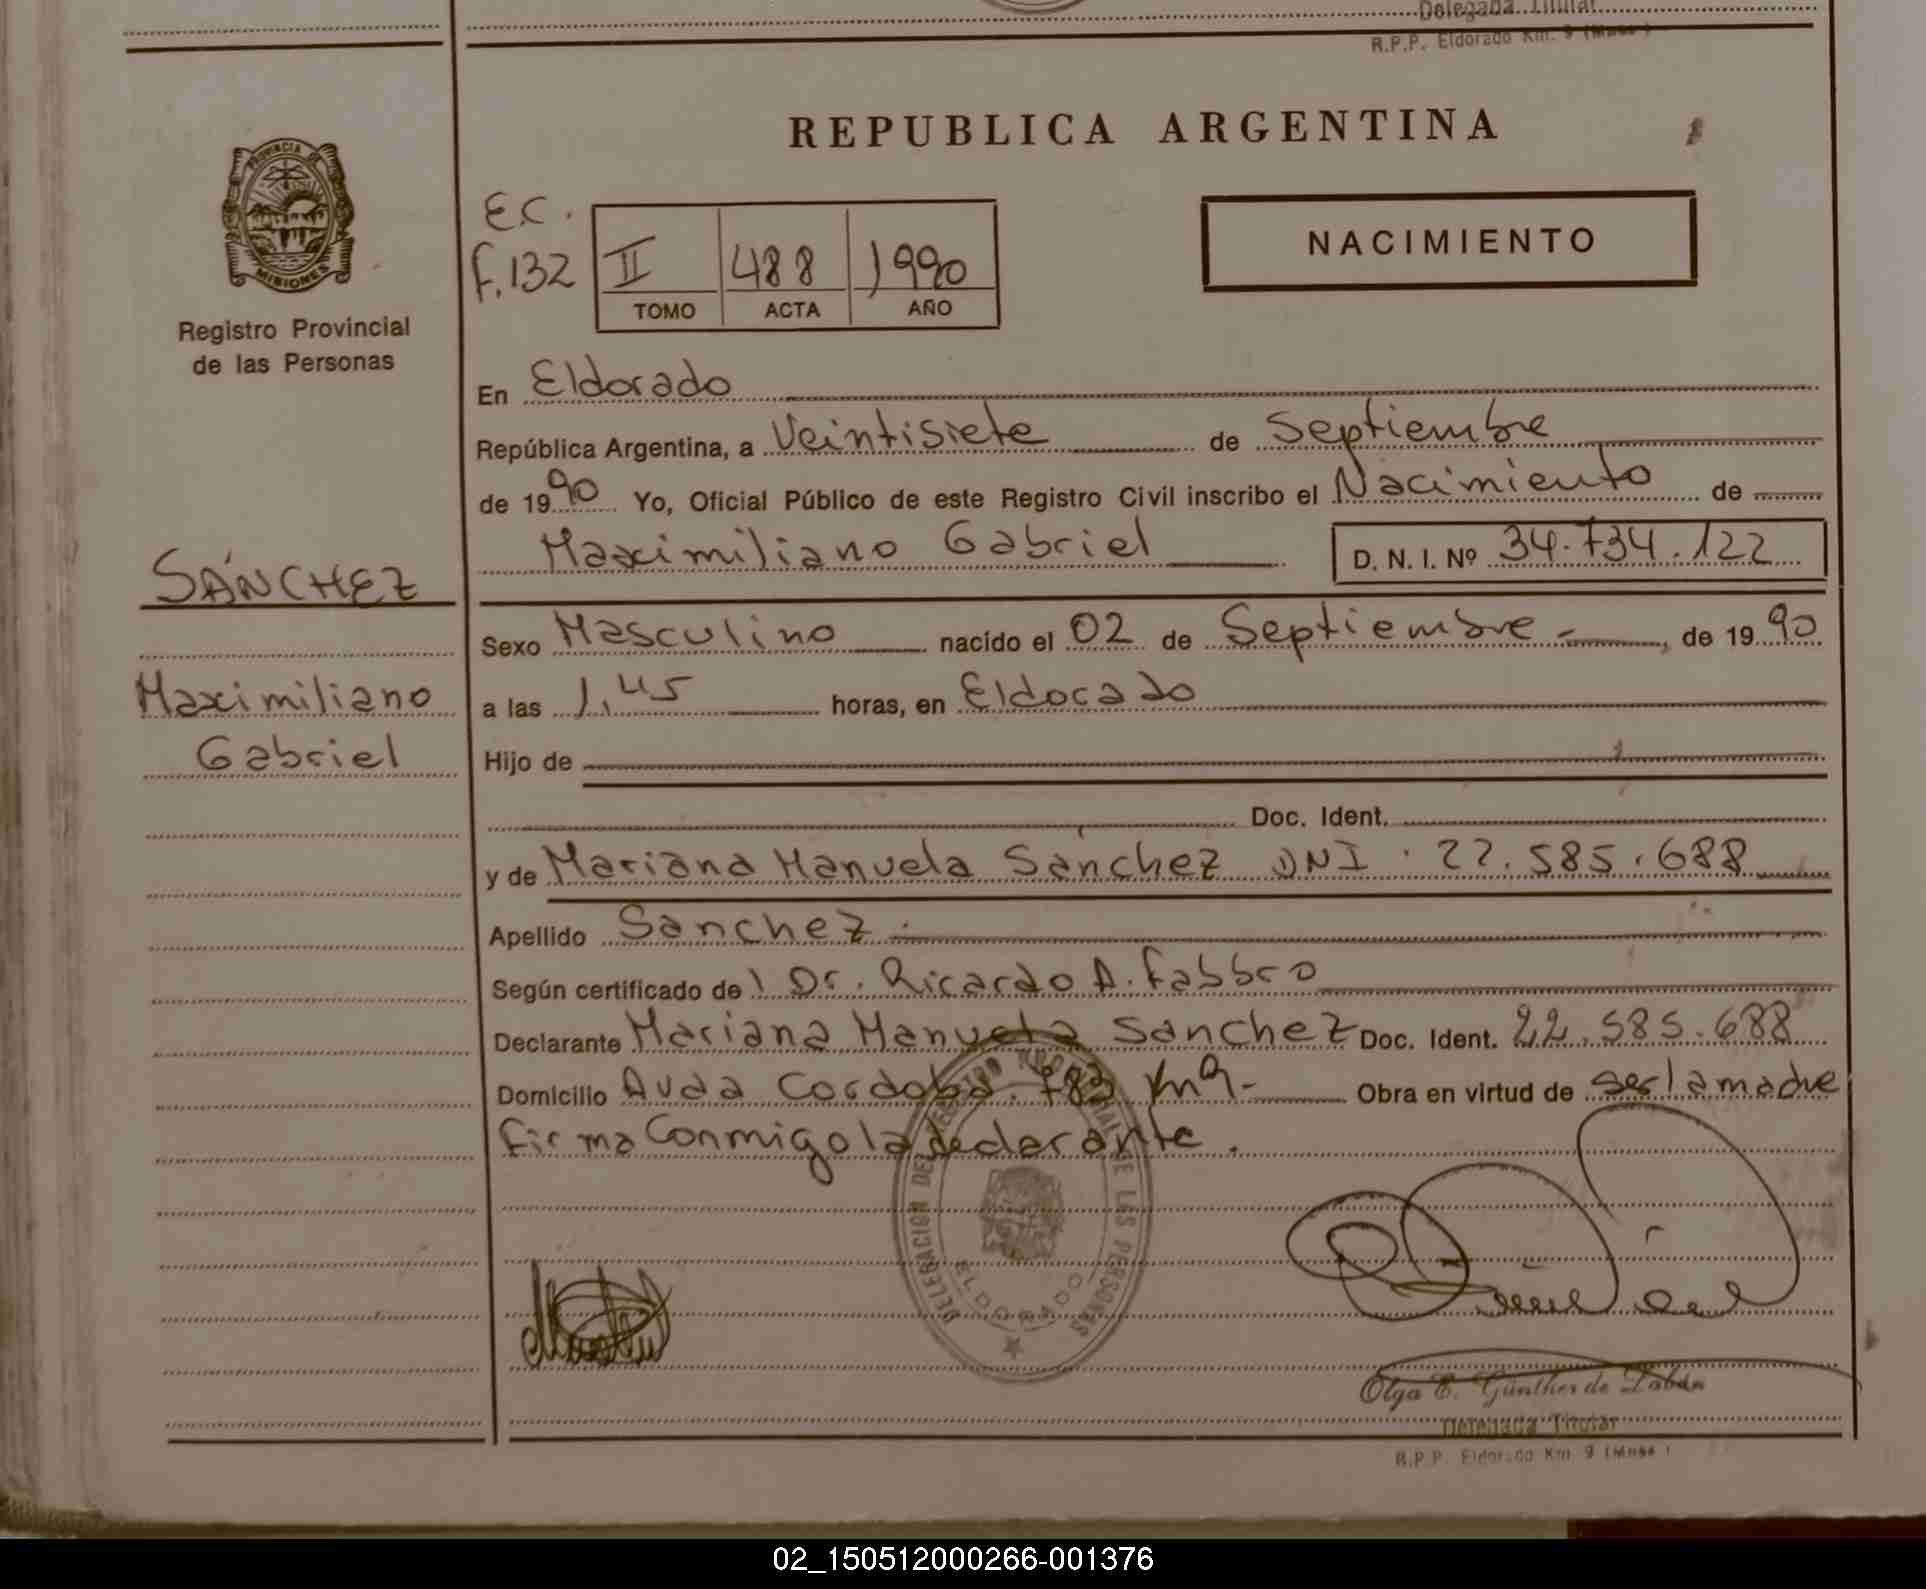 Delegada Titular
R.P.P. Eldorado Km. 9 (Mnes.)
REPUBLICA ARGENTINA
PROVINCIA DE
MISIONES
Registro Provincial
de las Personas
E.C.
F.132
II 488 1990
TOMO ACTA AÑO
NACIMIENTO
En Eldorado
República Argentina, a Veintisiete de Septiembre
de 1990 Yo, Oficial Público de este Registro Civil inscribo el Nacimiento de
Maximiliano Gabriel D. N. I. Nº 34.734.122
SÁNCHEZ
Maximiliano
Gabriel
Sexo Masculino nacido el 02 de Septiembre - , de 1990
a las 1,45 horas, en Eldorado
Hijo de
Doc. Ident.
y de Mariana Manuela Sanchez DNI. 22.585.688
Apellido Sanchez.
Según certificado del Dr. Ricardo A. Fabbro
Declarante Mariana Manuela Sanchez Doc. Ident. 22.585.688
Domicilio Avda Cordoba. 783 Km9- Obra en virtud de ser la madre
firma Conmigo la declarante.
DELEGACION DEL REGISTRO PROVINCIAL DE LAS PERSONAS
ELDORADO
Olga E. Günther de Zabán
Delegada Titular
R.P.P. Eldorado Km. 9 (Mnes.)
02_150512000266-001376